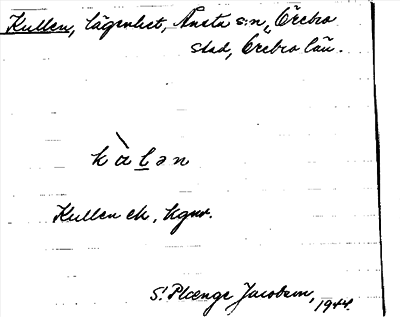 Kullen, lägenhet, Ånsta s:n, Örebro
stad, Örebro län.
Kullen ek, hgnr.
S. Plænge Jacobson, 1944.